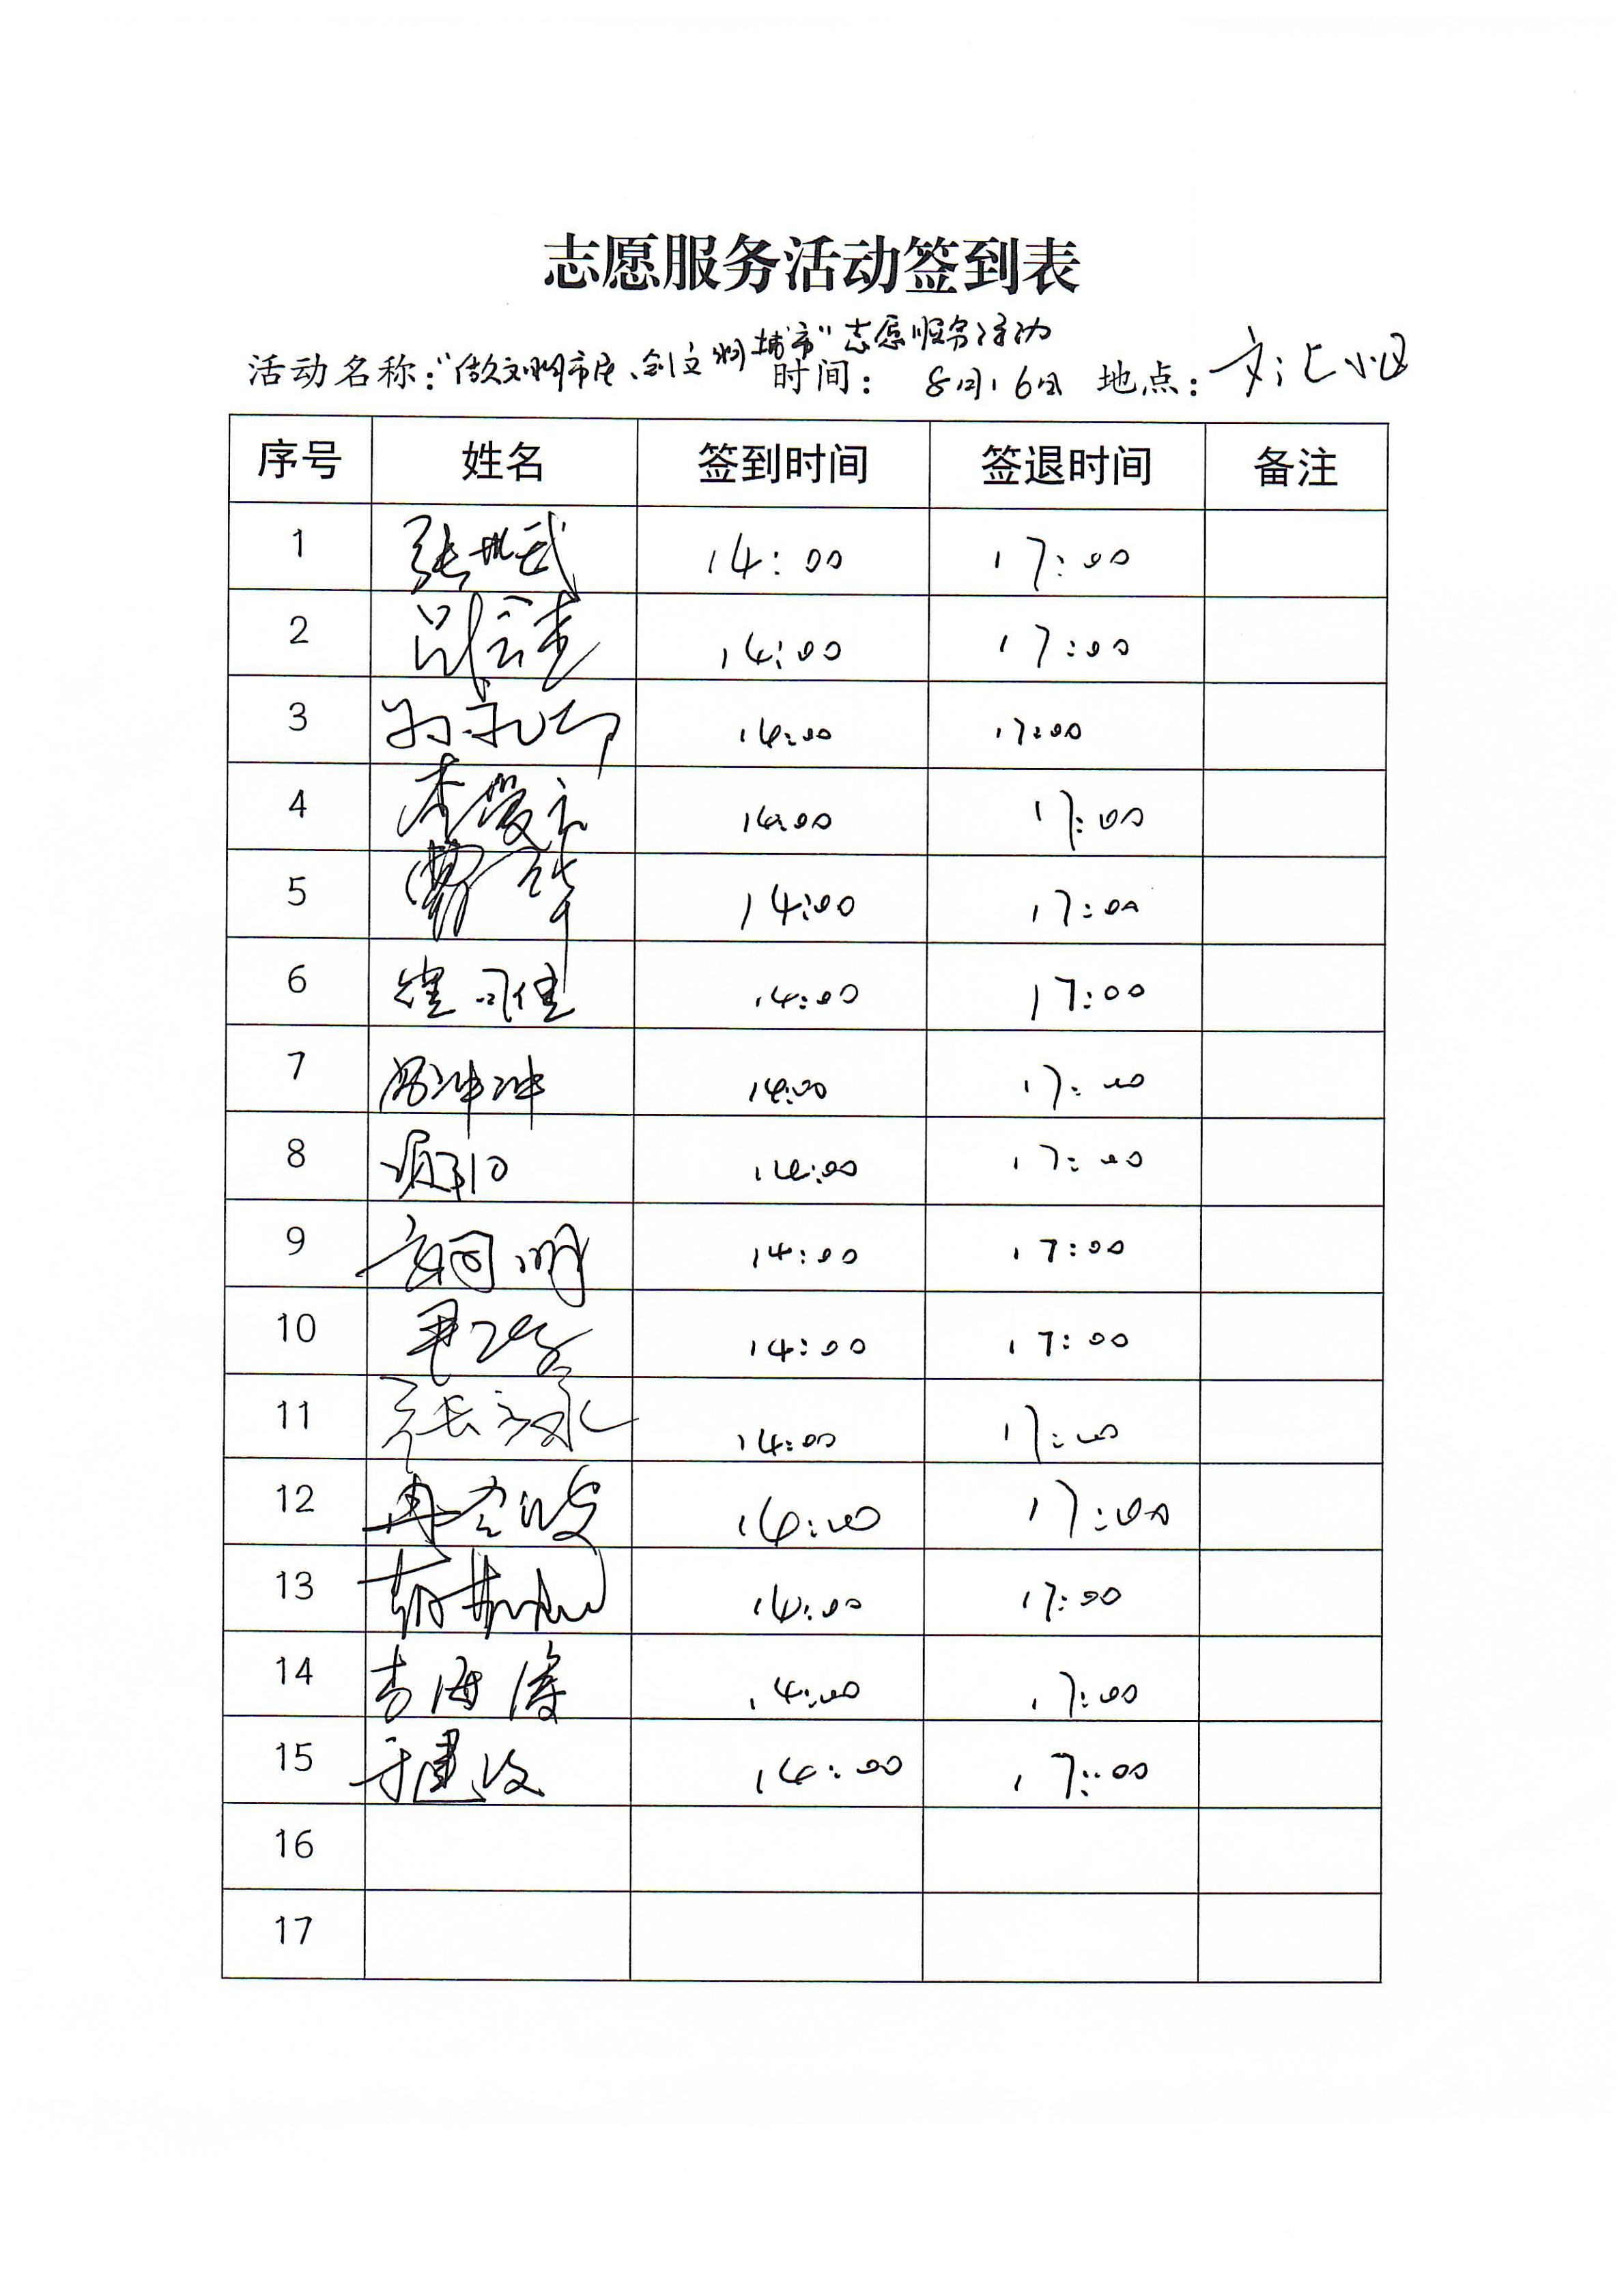 志愿服务活动签到表
活动名称:"做文明市民、创文明城市"志愿服务活动 时间: 8月16日 地点:文汇小区
序号 姓名 签到时间 签退时间 备注
1 张世武 14:00 17:00
2 14:00 17:00
3 14:00 17:00
4 李爱云 14:00 17:00
5 曹华 14:00 17:00
6 14:00 17:00
7 冯冲冲 14:00 17:00
8 14:00 17:00
9 14:00 17:00
10 14:00 17:00
11 张 14:00 17:00
12 冉 14:00 17:00
13 14:00 17:00
14 李海涛 14:00 17:00
15 于建波 14:00 17:00
16
17